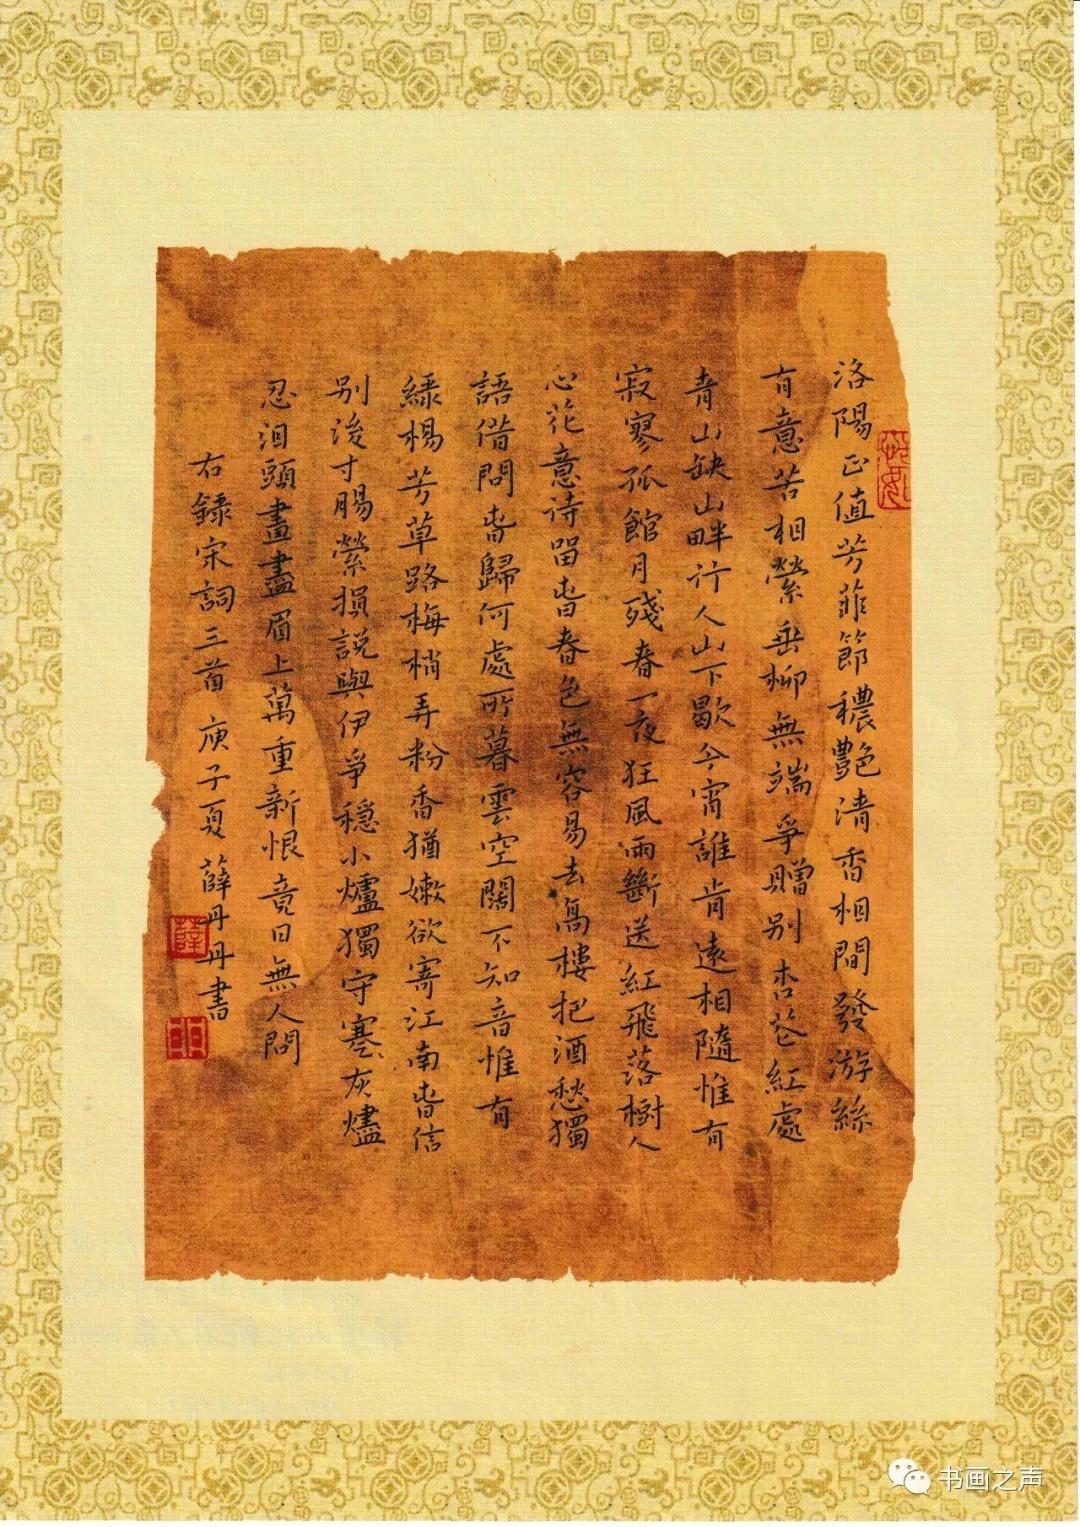 洛陽正值芳菲節穠艷清香相間發游絲
有意苦相縈垂柳無端爭贈別杏花紅處
青山缺山畔行人山下歇今宵誰肯遠相隨惟有
寂寥孤館月殘春一夜狂風雨斷送紅飛落樹人
心花意待畱旾春色無容易去高樓把酒愁獨
語借問旾歸何處所暮雲空闊不知音惟有
綠楊芳草路梅梢弄粉香猶嫩欲寄江南旾信
别後寸腸縈損説與伊爭穩小爐獨守寒灰燼
忍泪頭畫盡眉上萬重新恨竟日無人問
右錄宋詞三首 庚子夏 薛丹丹書
薛
书画之声